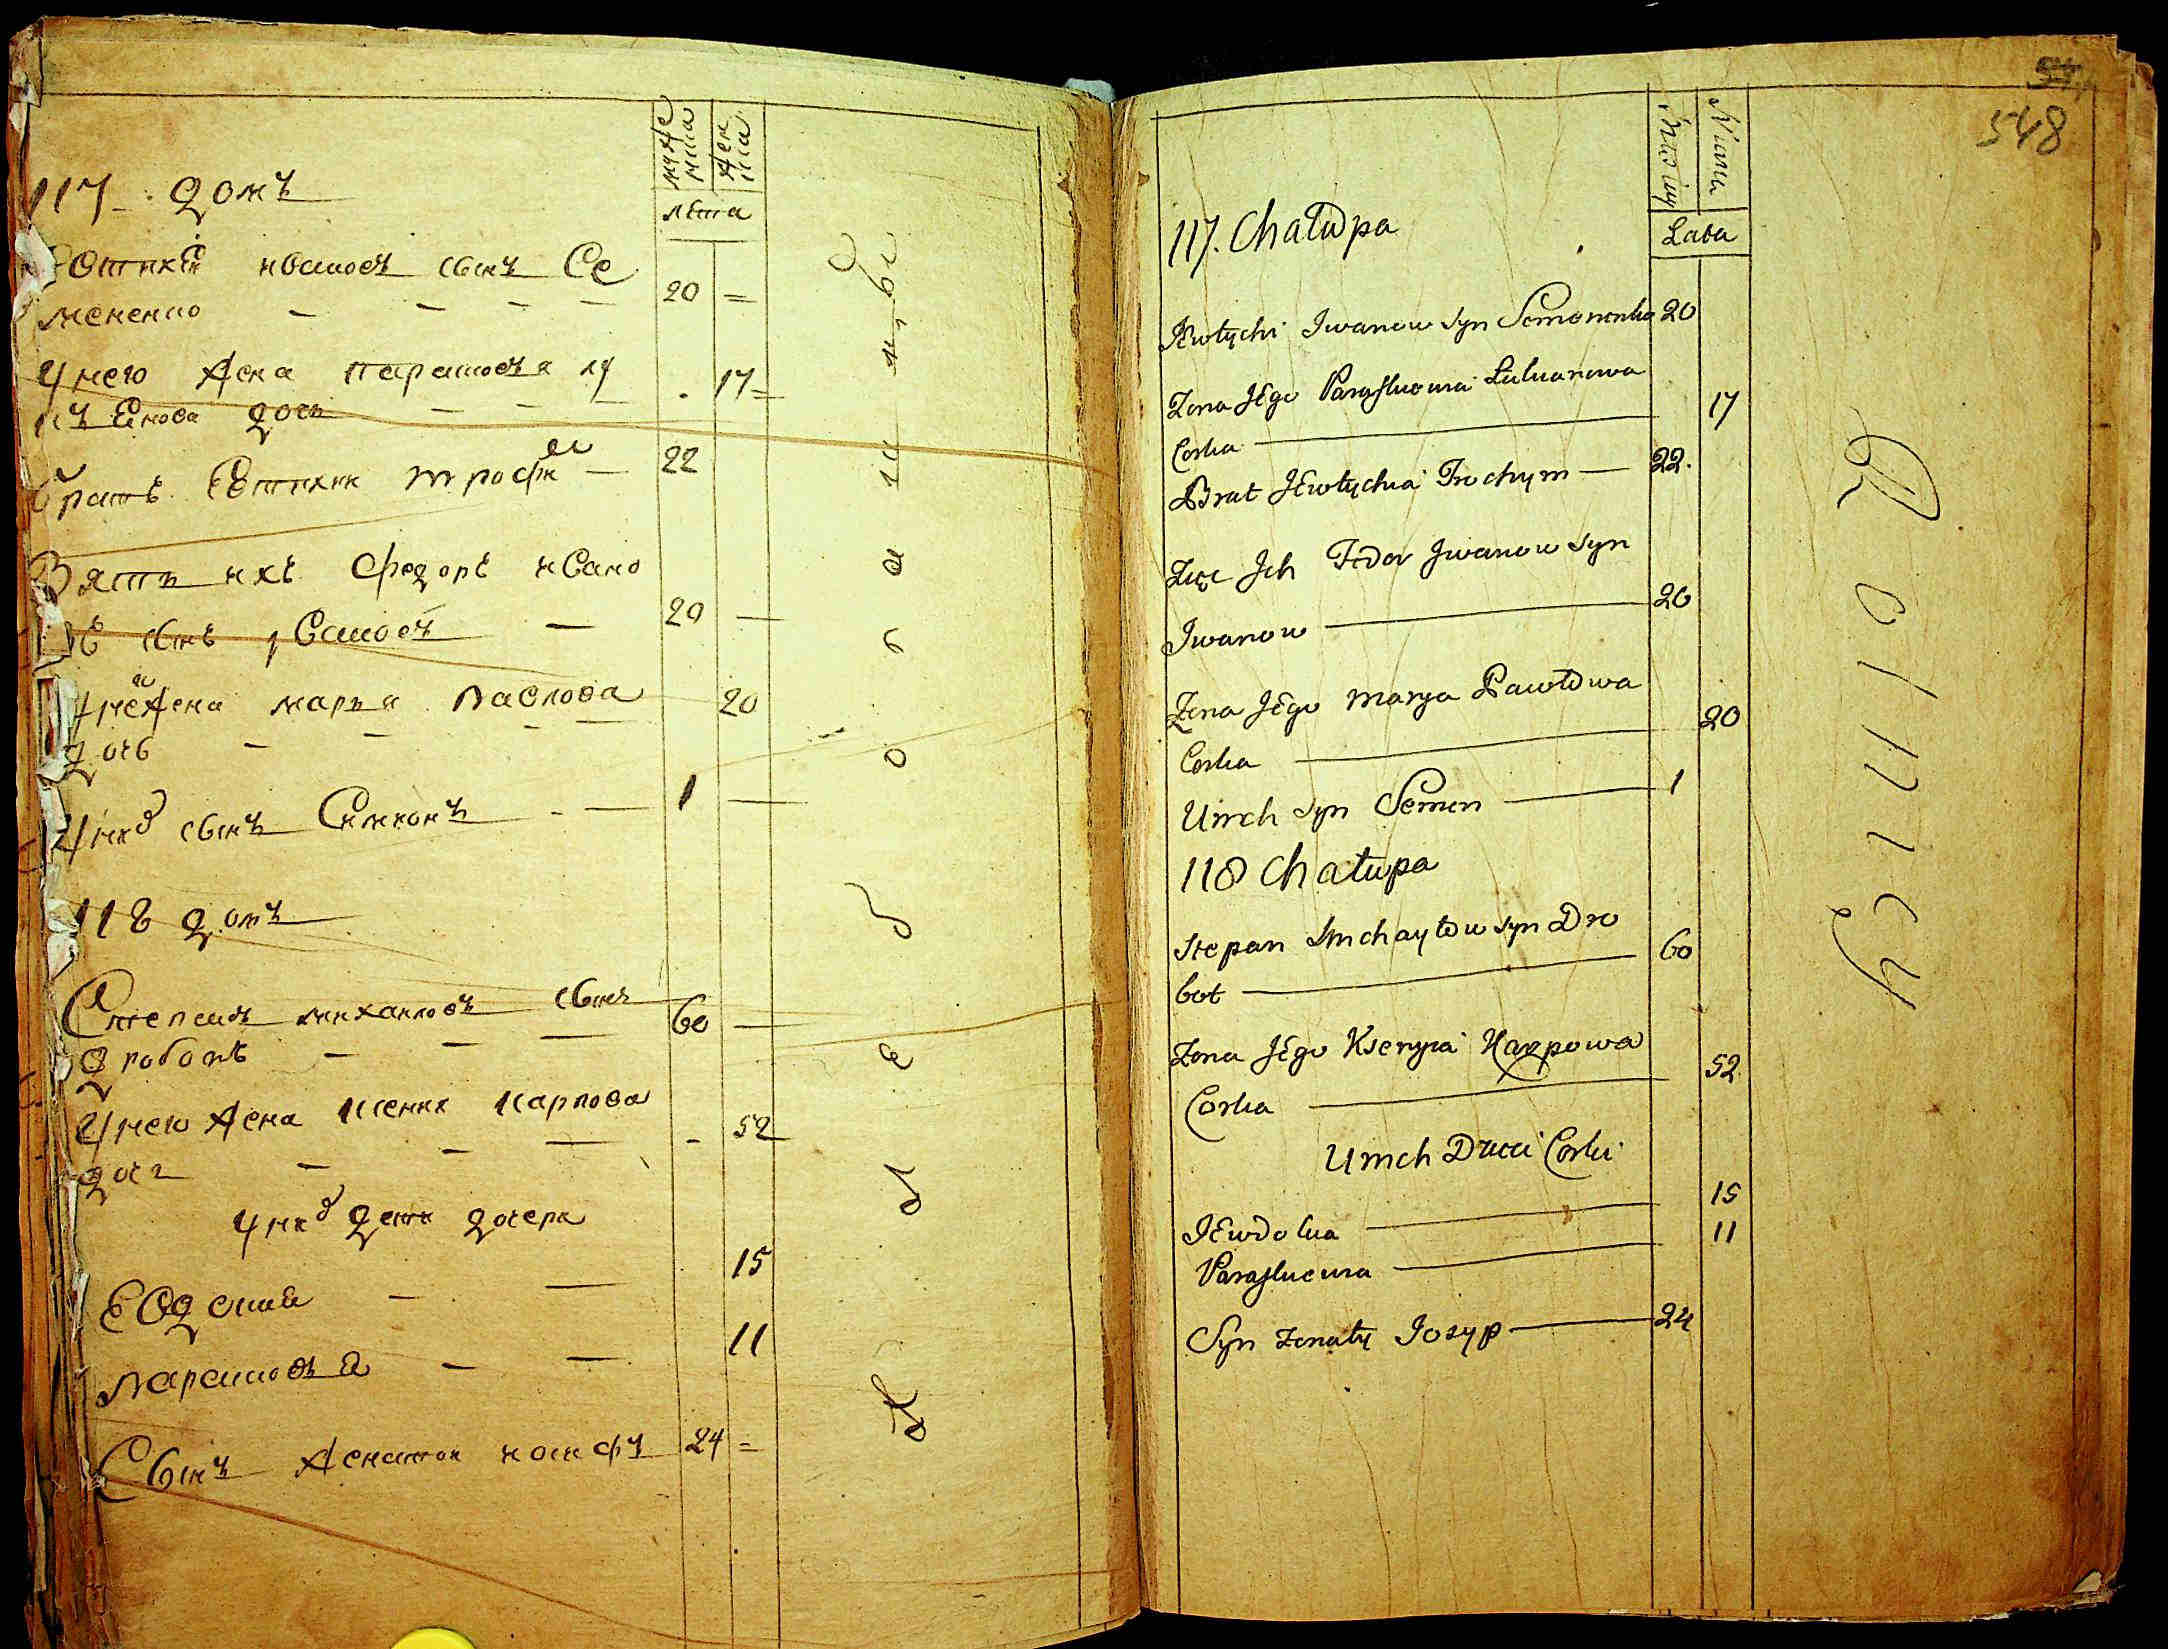 мужеска
женска
лѣта
117 домъ
Евтихѣй ивановъ сынъ Се
мененко 20
У него жена парасковѣя лу
къянова дочь 17
братъ Евтихия трофимъ 22
Зять ихъ федоръ ивано
въ сынъ ивановъ 20
У него жена марья павлова
дочь 20
У них сынъ Симионъ 1
118 домъ
Степанъ михайловъ сынъ
дроботъ 60
У него жена ксения карпова
дочь 52
У них дети дочери
Евдокия 15
парасковѣя 11
Сынъ женатой иосифъ 24
Хлебопашцы
548
Męskiey
Lata
117. Chałupa
JEwtychi Jwanow syn Semenenko 20
Zona JEgo Paraskewia Lukianowa
Corka 17
Brat JEwtychia Trochym 22.
Zięc Jch Fedor Jwanow syn
Jwanow 20
Zona JEgo Marya Pawłowa
Corka 20
U nich syn Semen 1
118 Chałupa
Stepan Michayłow syn Dro
bot 60
Zona JEgo Ksenyia Karpowa
Corka 52
U nich Dzieci Corki
JEwdokia 15
Paraskewia 11
Syn zonaty Josyp 24
Rolnicy